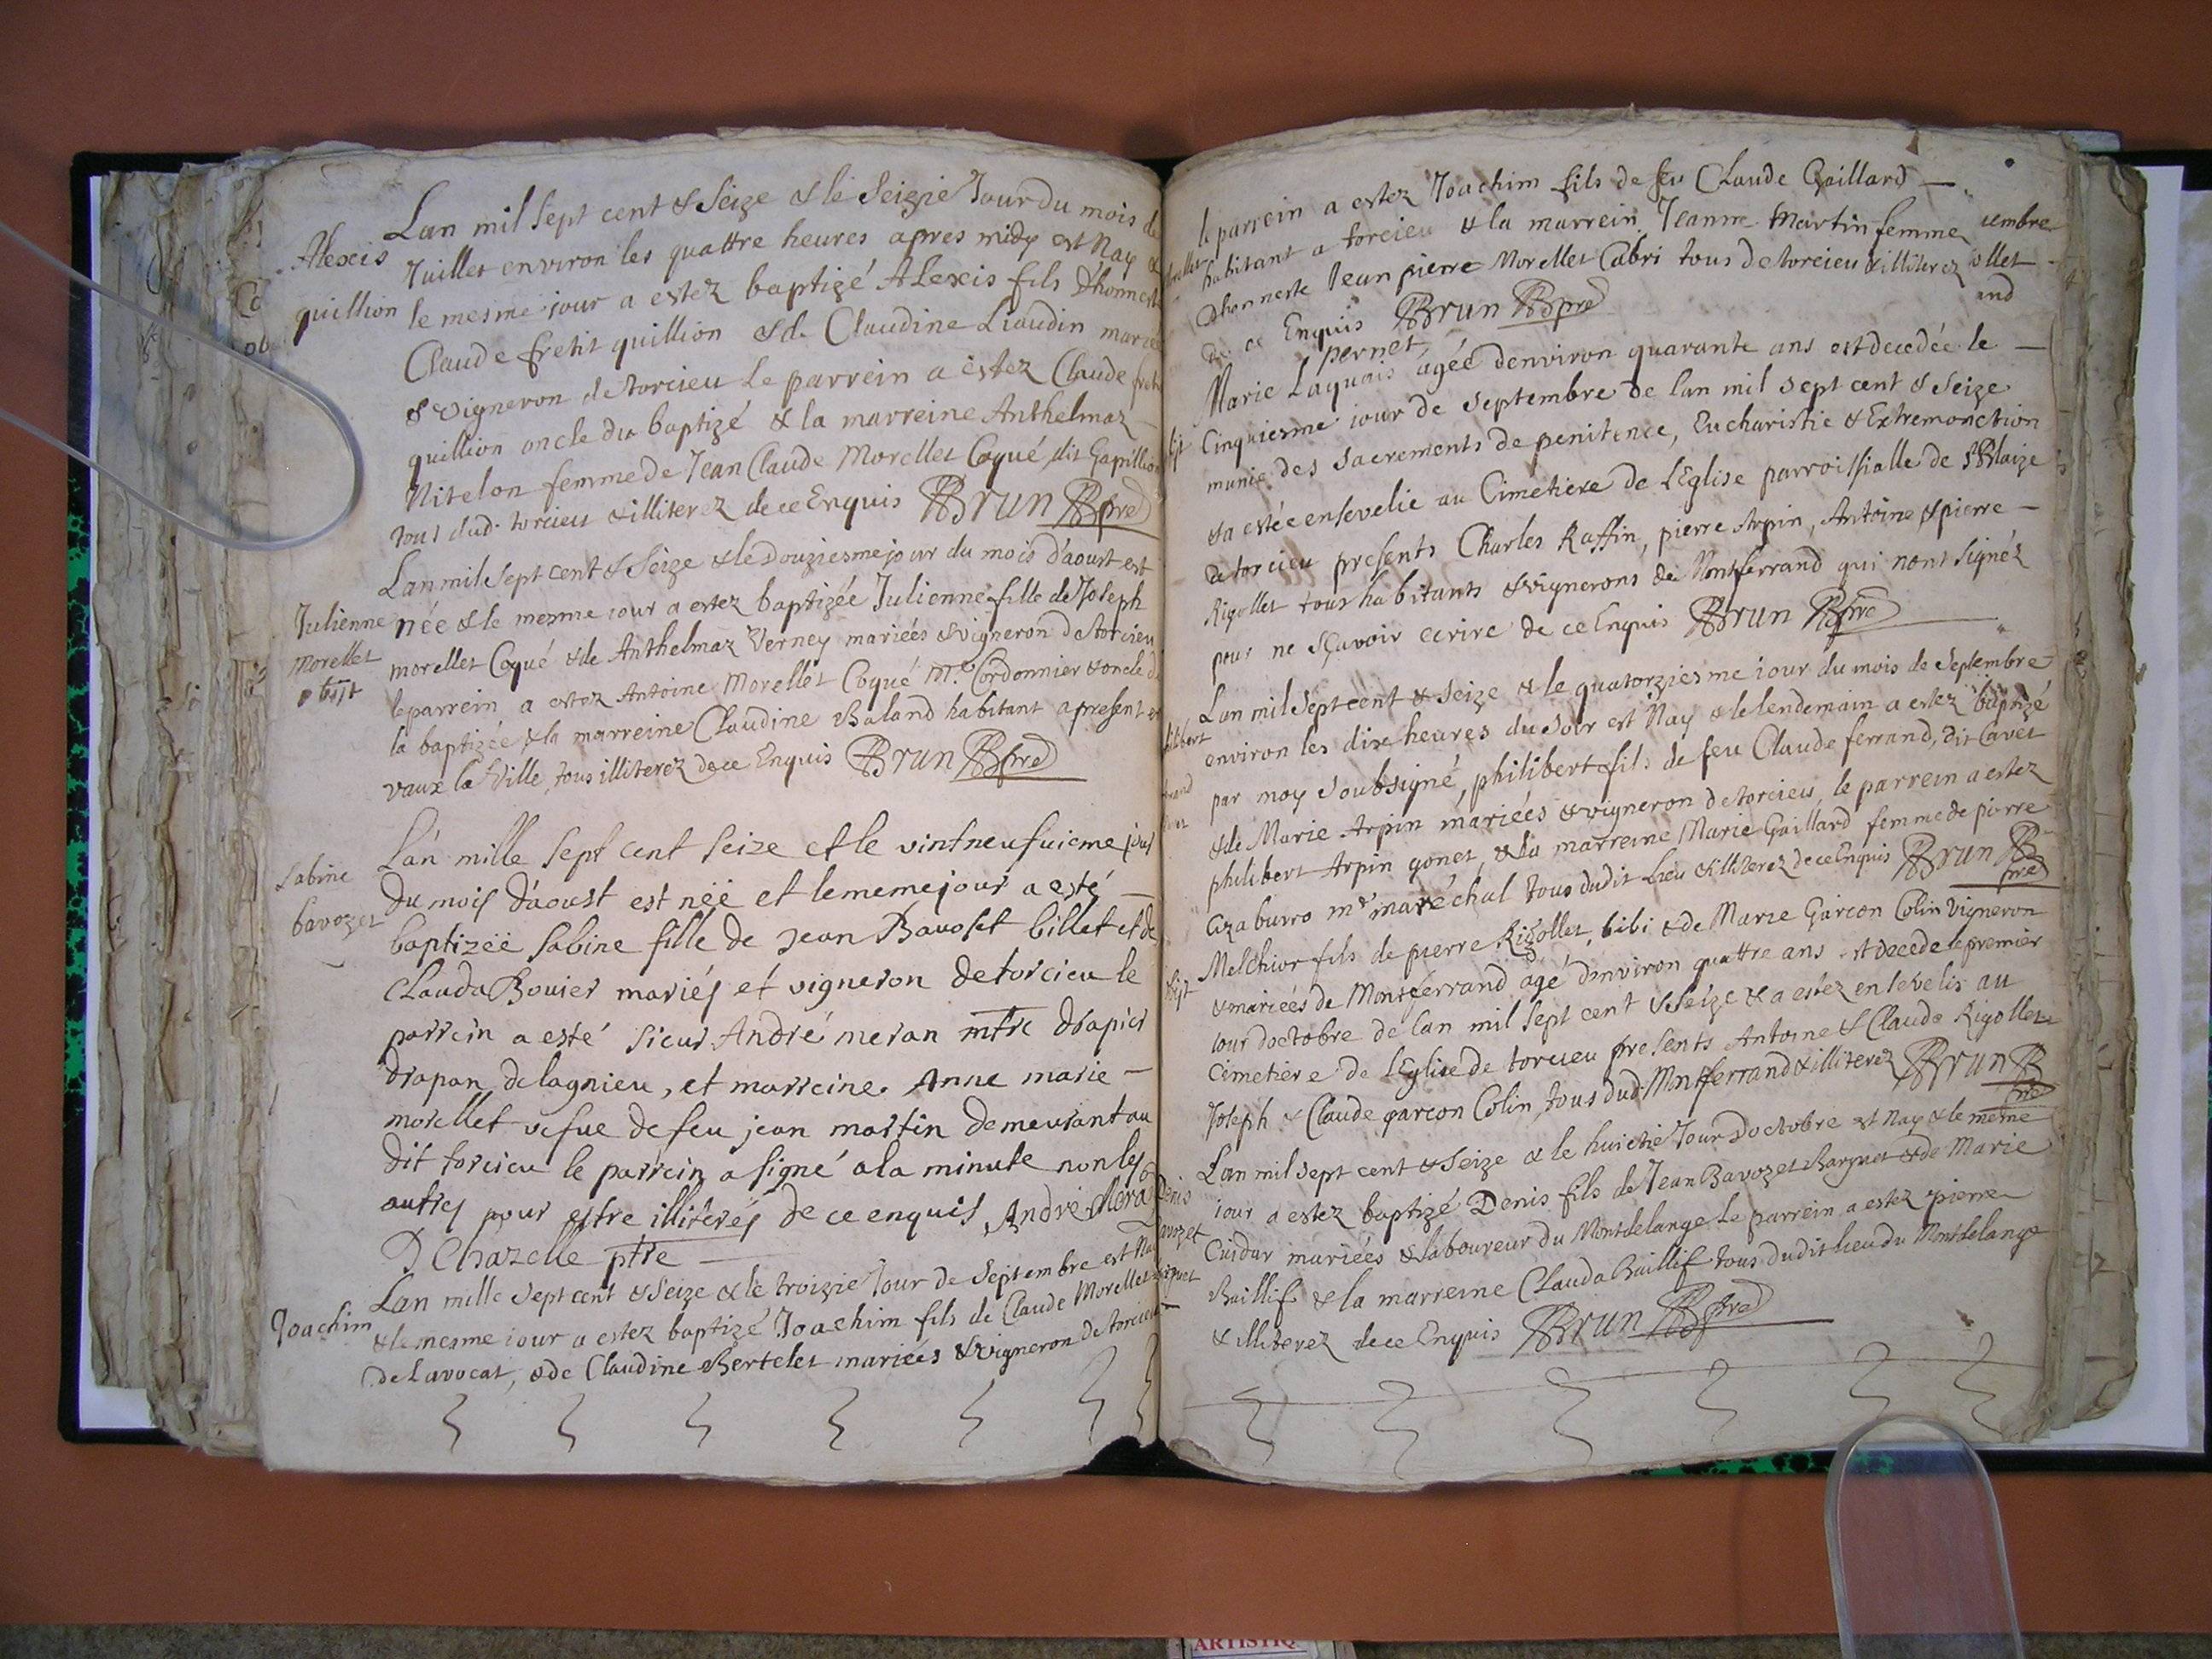 Lan mil sept cent & seize & le seizie Jour du mois de
Alexis
Juillet environ les quattre heures apres midy est Nay &
quillion
le mesme jour a estez baptizé Alexis fils d'honneste
Claude fretit quillion & de Claudine Liaudin mariés
& vigneron de torcieu Le parrein a estez Claude fretit
quillion oncle du baptizé & la marreine Anthelmaz
Nitelon femme de Jean Claude Morellet Coqué dit Gapillion
tous dud. torcieu & illiterez de ce Enquis Brun pre
Lan mil sept cent & seize & le douziesme jour du mois d'aoust est
Julienne
née & le mesme iour a estez baptizée Julienne fille de Joseph
Morellet
morellet Coqué & de Anthelmaz Verney mariées & vigneron de torcieu
obijt
le parrein a estez Antoine Morellet Coqué Me Cordonnier & oncle de
la baptizée & la marreine Claudine Baland habitant a present
vaux la Ville, tous illiterez de ce Enquis Brun pre
L'an mille sept cent seize et le vintneufuieme jour
Sabine
du mois d'aoust est néé et le meme jour a esté
bavozet
baptizéé sabine fille de jean Bavoset billet et de
Clauda Bouier mariés et vigneron de torcieu le
parrein a esté sieur André meran mtre drapier
drapan de lagnieu, et marreine Anne marie
morellet vefue de feu jean martin demeurant au
dit torcieu le parrein a signé a la minute non les
autres pour estre illiterés de ce enquis André Mera
D Chazelle ptre
Lan mille sept cent & seize & le troizie Jour de septembre est Nay
Joachim
& le mesme iour a estez baptizé Joachim fils de Claude Morellet
de Lavocat, & de Claudine Bertelet mariées & vigneron de torcieu
le parrein a estez Joachim fils de feu Claude Gaillard
habitant a torcieu & la marrein Jeanne Martin femme
d'honneste Jean pierre Morellet Cabri tous de torcieu & illiterez
de ce Enquis Brun pre
pernet
Marie Laquais agée denviron quarante ans est decedée le
Cinquiesme iour de septembre de lan mil sept cent & seize
munie des sacrements de penitence, Eucharistie & Extremonction
& a estée ensevelie au Cimetiere de l'Eglise parroissialle de st Blaize
de torcieu presents Charles Raffin, pierre Arpin, Antoine & pierre
Rigollet tous habitants & vignerons de Montferrand qui nont signéz
pour ne sçavoir ecrire de ce Enquis Brun pre
Lan mil sept cent & seize & le quatorziesme iour du mois de septembre
environ les dix heures du soir est Nay & le lendemain a estez baptizé
par moy soubsigné, philibert fils de feu Claude ferrand, dit Cavet
& de Marie Arpin mariées & vigneron de torcieu, le parrein a estez
philibert Arpin gonet, & la marreine Marie Gaillard femme de pierre
Cazaburro me maréchal tous dudit Lieu & illiterez de ce Enquis Brun pre
Melchior fils de pierre Rigollet, bibi & de Marie Garcon Colin Vigneron
& mariées de Montferrand agé denviron quattre ans est decede le premier
iour doctobre de lan mil sept cent & seize & a estez ensevelis au
Cimetiere de l'Eglise de torcieu presents Antoine & Claude Rigollet
Joseph & Claude garcon Colin, tous dud. Montferrand & illiterez Brun pre
Lan mil sept cent & seize & le huictie Jour d'octobre est Nay & le meme
Denis
iour a estez baptizé Denis fils de Jean Bavozet Barquet & de Marie
Cuidar mariées & laboureur du Montdelange le parrein a estez pierre
Baillif & la marreine Clauda Baillif tous dudit lieu du Montdelange
& illiterez de ce Enquis Brun pre
ARTISTIQ